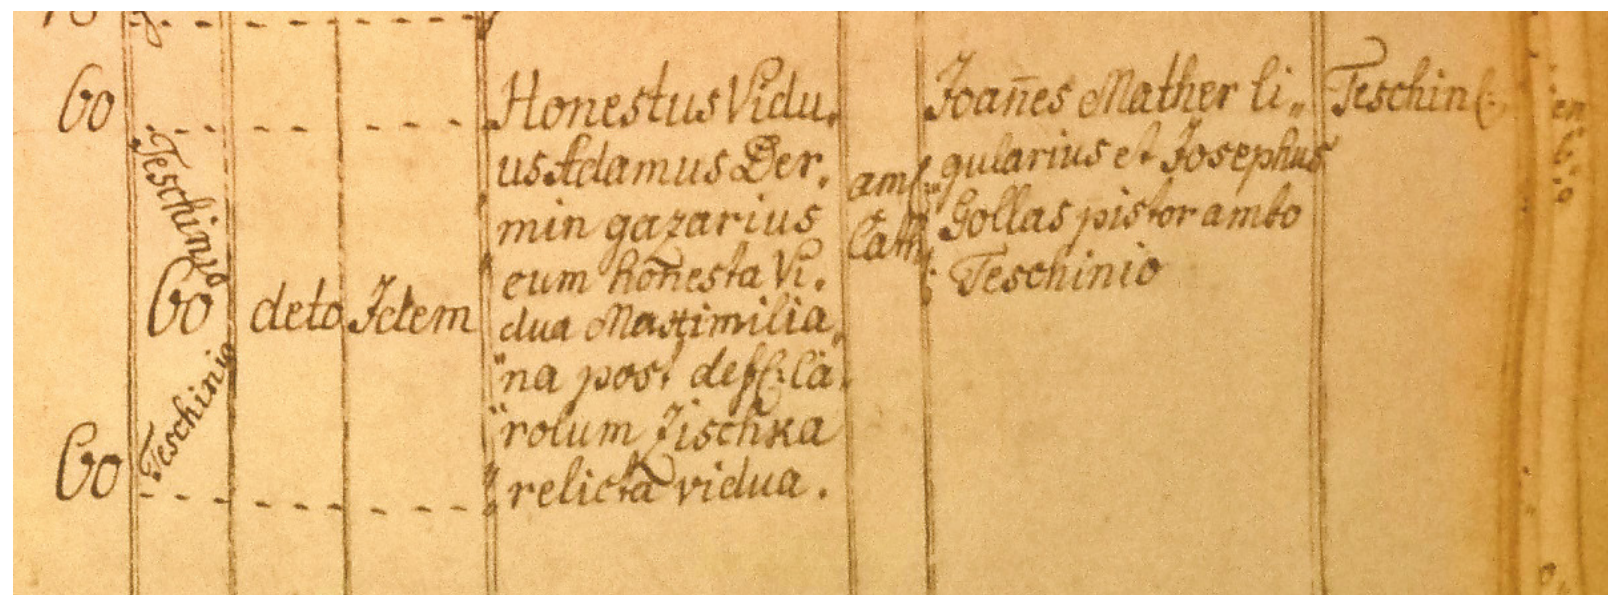 60
Teschinio
60
Teschinio
60
deto
Idem
Honestus Vidu.
us Adamus Der.
min gazarius
cum honesta Vi.
dua Maximilia„
"na post deff: Ca.
"rolum Zischka
relicta vidua.
amb:
Cath:
Joan̄es Mather li„
gularius et Josephus
Gollas pistor ambo
Teschinio
Teschin